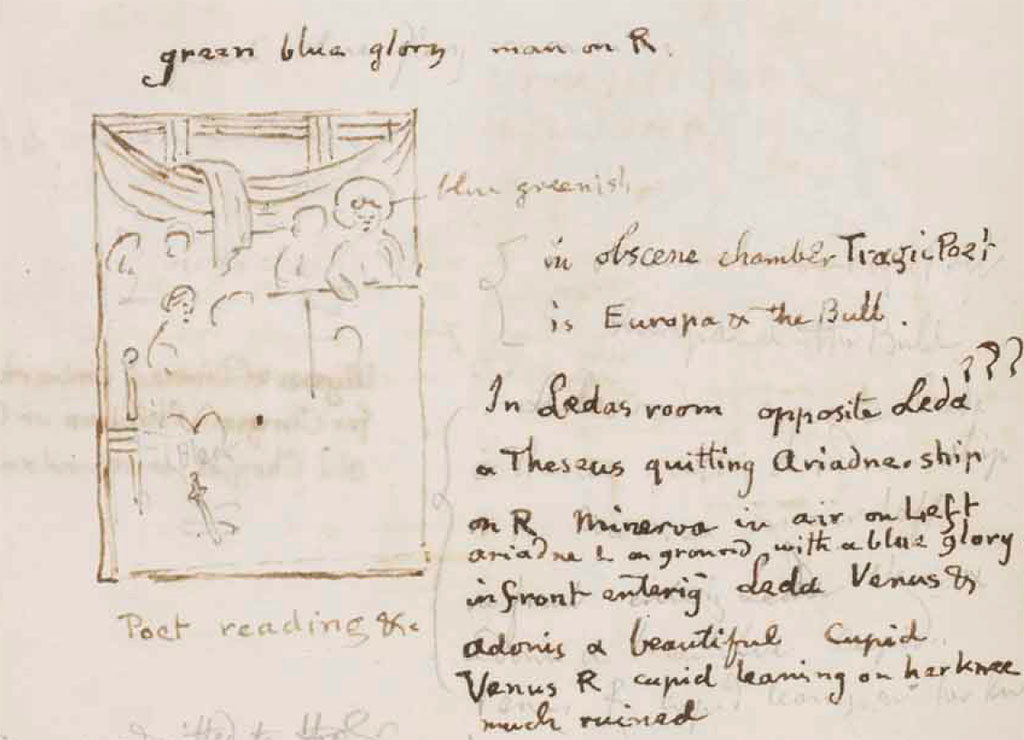 green blue glory man on R.
blue greenish
in obscene chamber Tragic Poet
is Europa & the Bull.
???
In Ledas room opposite Leda
a Theseus quitting Ariadne. ship
on R Minerva in air on Left
ariadne L on ground with a blue glory
in front enterig Leda Venus &
adonis a beautiful Cupid
Venus R cupid leaning on her knee
much ruined
Poet reading &c